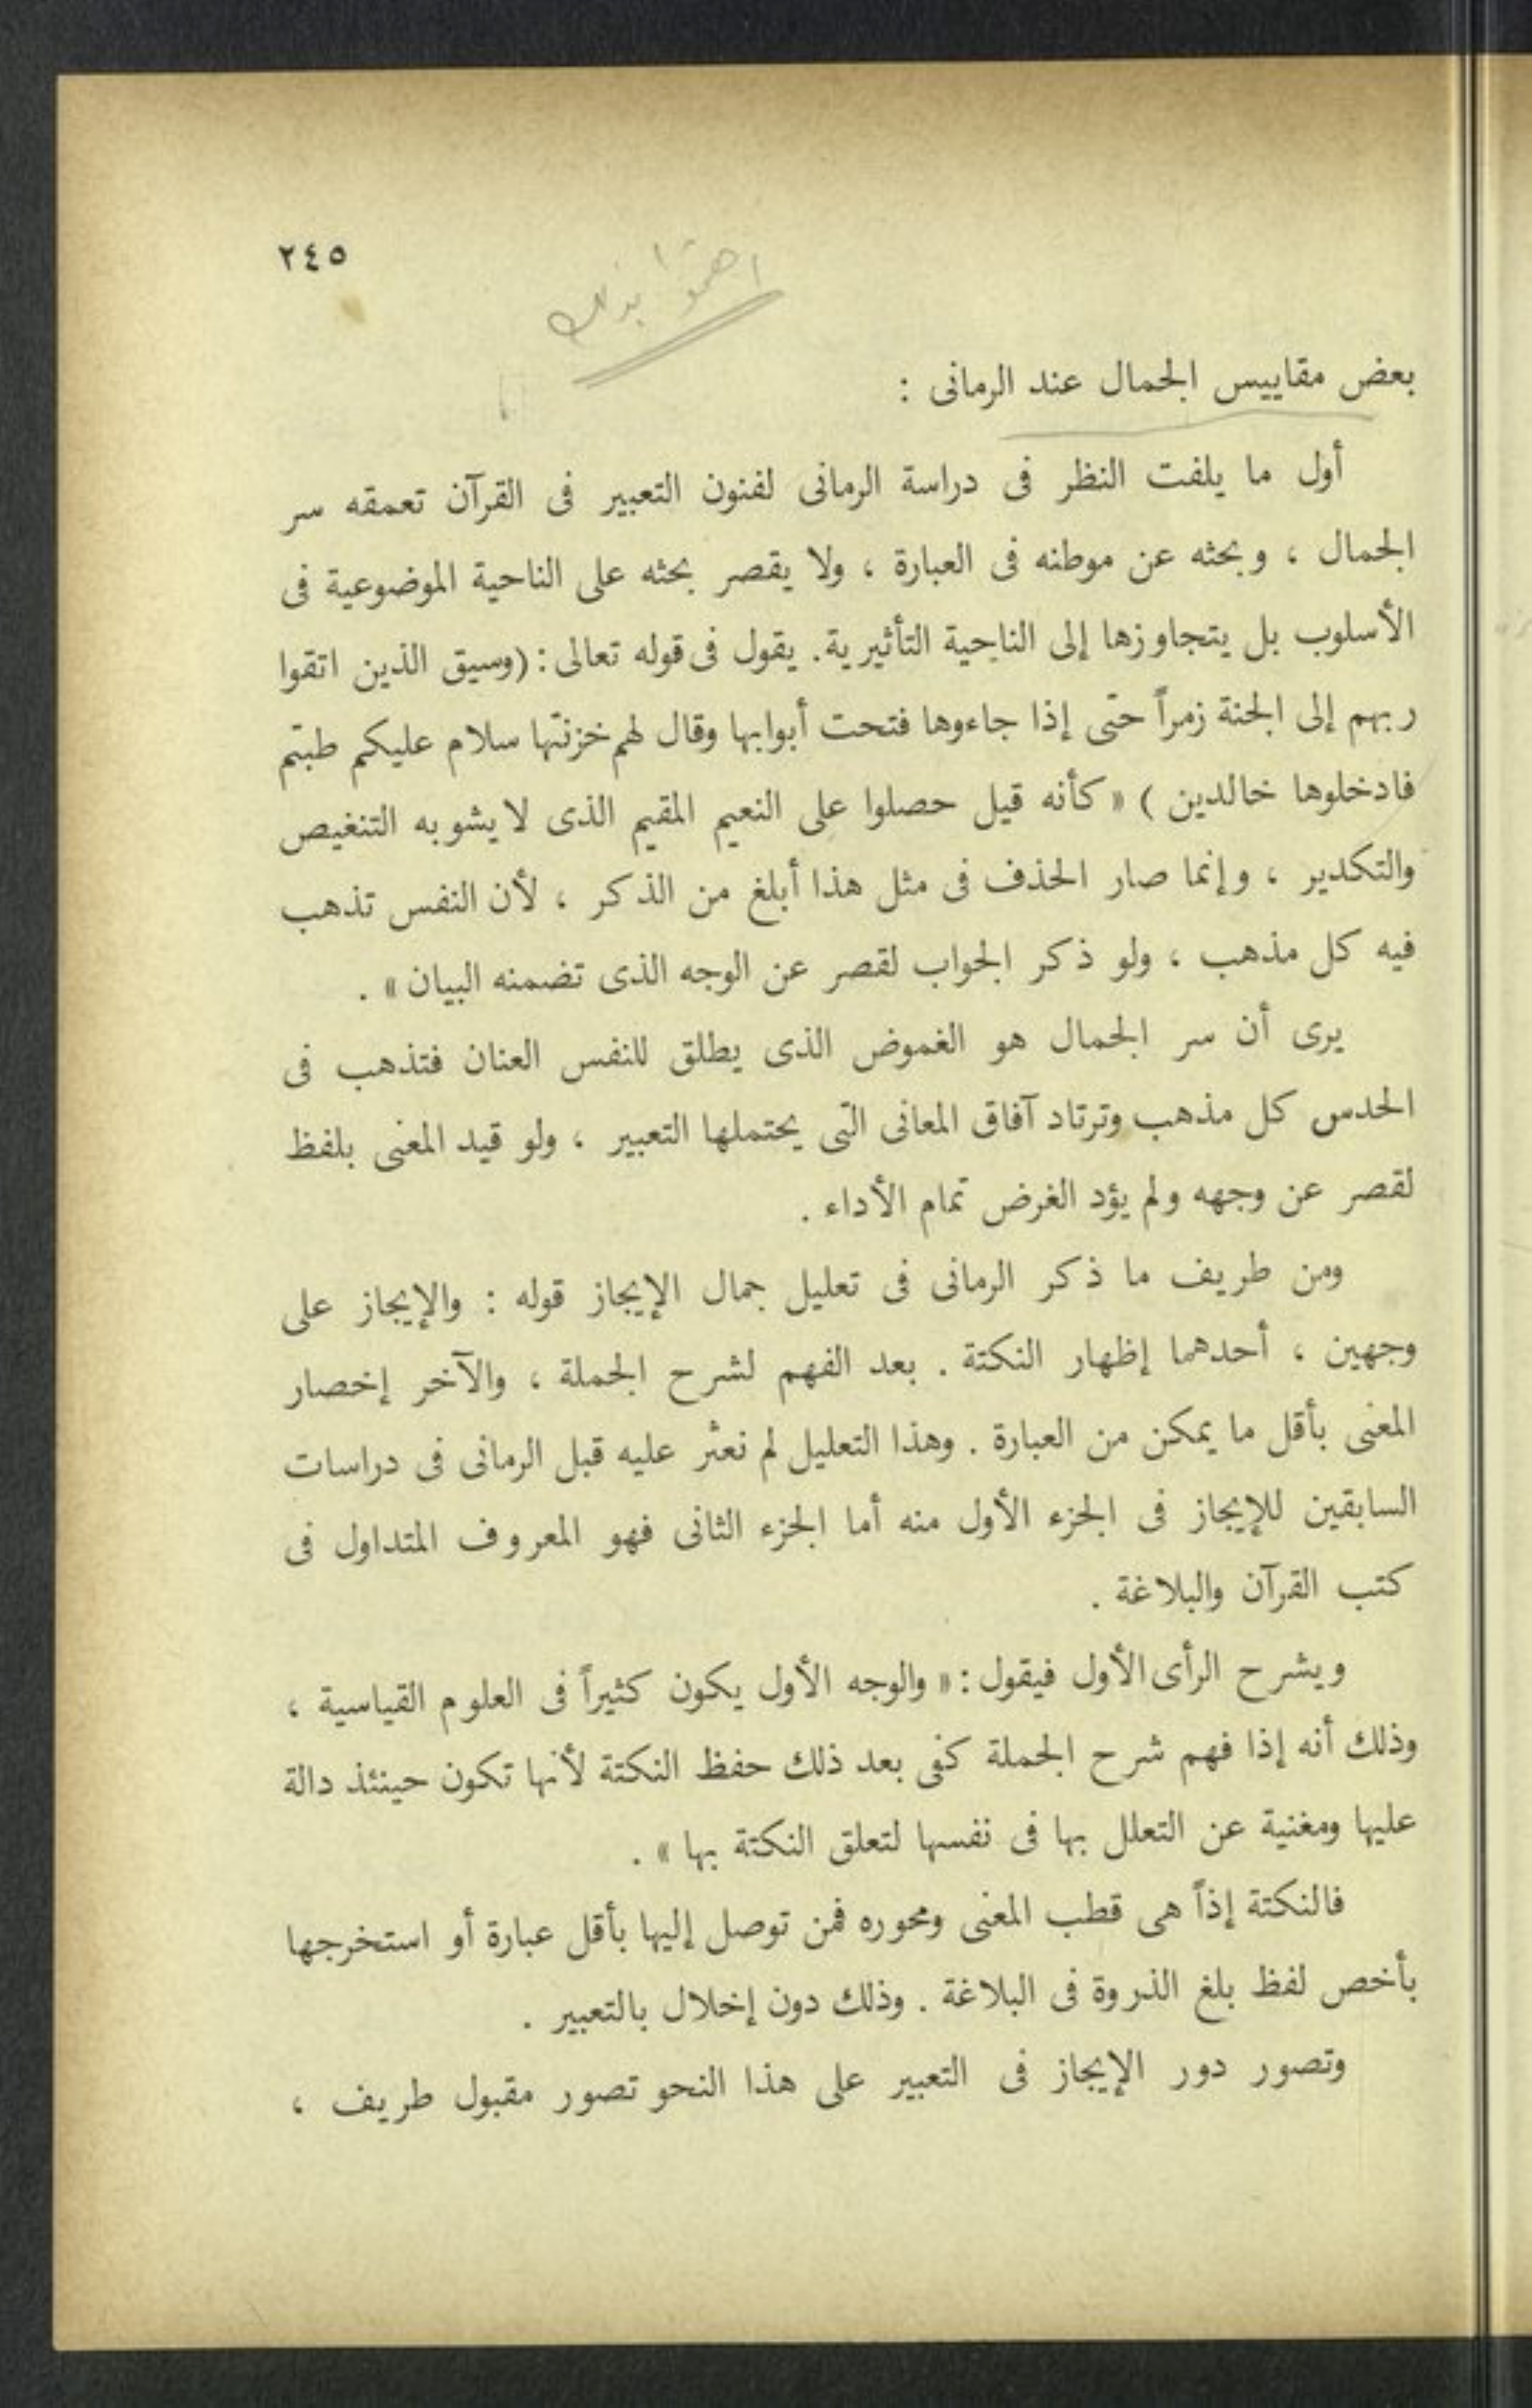 ٢٤٥
اهتموا بذلك
بعض مقاييس الجمال عند الرمانى :
أول ما يلفت النظر فى دراسة الرمانى لفنون التعبير فى القرآن تعمقه سر
الجمال ، وبحثه عن موطنه فى العبارة ، ولا يقصر بحثه على الناحية الموضوعية فى
الأسلوب بل يتجاوزها إلى الناحية التأثيرية. يقول فى قوله تعالى : (وسيق الذين اتقوا
ربهم إلى الجنة زمراً حتى إذا جاءوها فتحت أبوابها وقال لهم خزنتها سلام عليكم طبتم
فادخلوها خالدين ) « كأنه قيل حصلوا على النعيم المقيم الذى لا يشوبه التنغيص
والتكدير ، وإنما صار الحذف فى مثل هذا أبلغ من الذكر ، لأن النفس تذهب
فيه كل مذهب ، ولو ذكر الجواب لقصر عن الوجه الذى تضمنه البيان » .
يرى أن سر الجمال هو الغموض الذى يطلق للنفس العنان فتذهب فى
الحدس كل مذهب وترتاد آفاق المعانى التى يحتملها التعبير ، ولو قيد المعنى بلفظ
لقصر عن وجهه ولم يؤد الغرض تمام الأداء .
ومن طريف ما ذكر الرمانى فى تعليل جمال الإيجاز قوله : والإيجاز على
وجهين ، أحدهما إظهار النكتة . بعد الفهم لشرح الجملة ، والآخر إخصار
المعنى بأقل ما يمكن من العبارة . وهذا التعليل لم نعثر عليه قبل الرمانى فى دراسات
السابقين للإيجاز فى الجزء الأول منه أما الجزء الثانى فهو المعروف المتداول فى
كتب القرآن والبلاغة .
ويشرح الرأى الأول فيقول : « والوجه الأول يكون كثيراً فى العلوم القياسية ،
وذلك أنه إذا فهم شرح الجملة كفى بعد ذلك حفظ النكتة لأنها تكون حينئذ دالة
عليها ومغنية عن التعلل بها فى نفسها لتعلق النكتة بها » .
فالنكتة إذاً هى قطب المعنى ومحوره فمن توصل إليها بأقل عبارة أو استخرجها
بأخص لفظ بلغ الذروة فى البلاغة . وذلك دون إخلال بالتعبير .
وتصور دور الإيجاز فى التعبير على هذا النحو تصور مقبول طريف ،